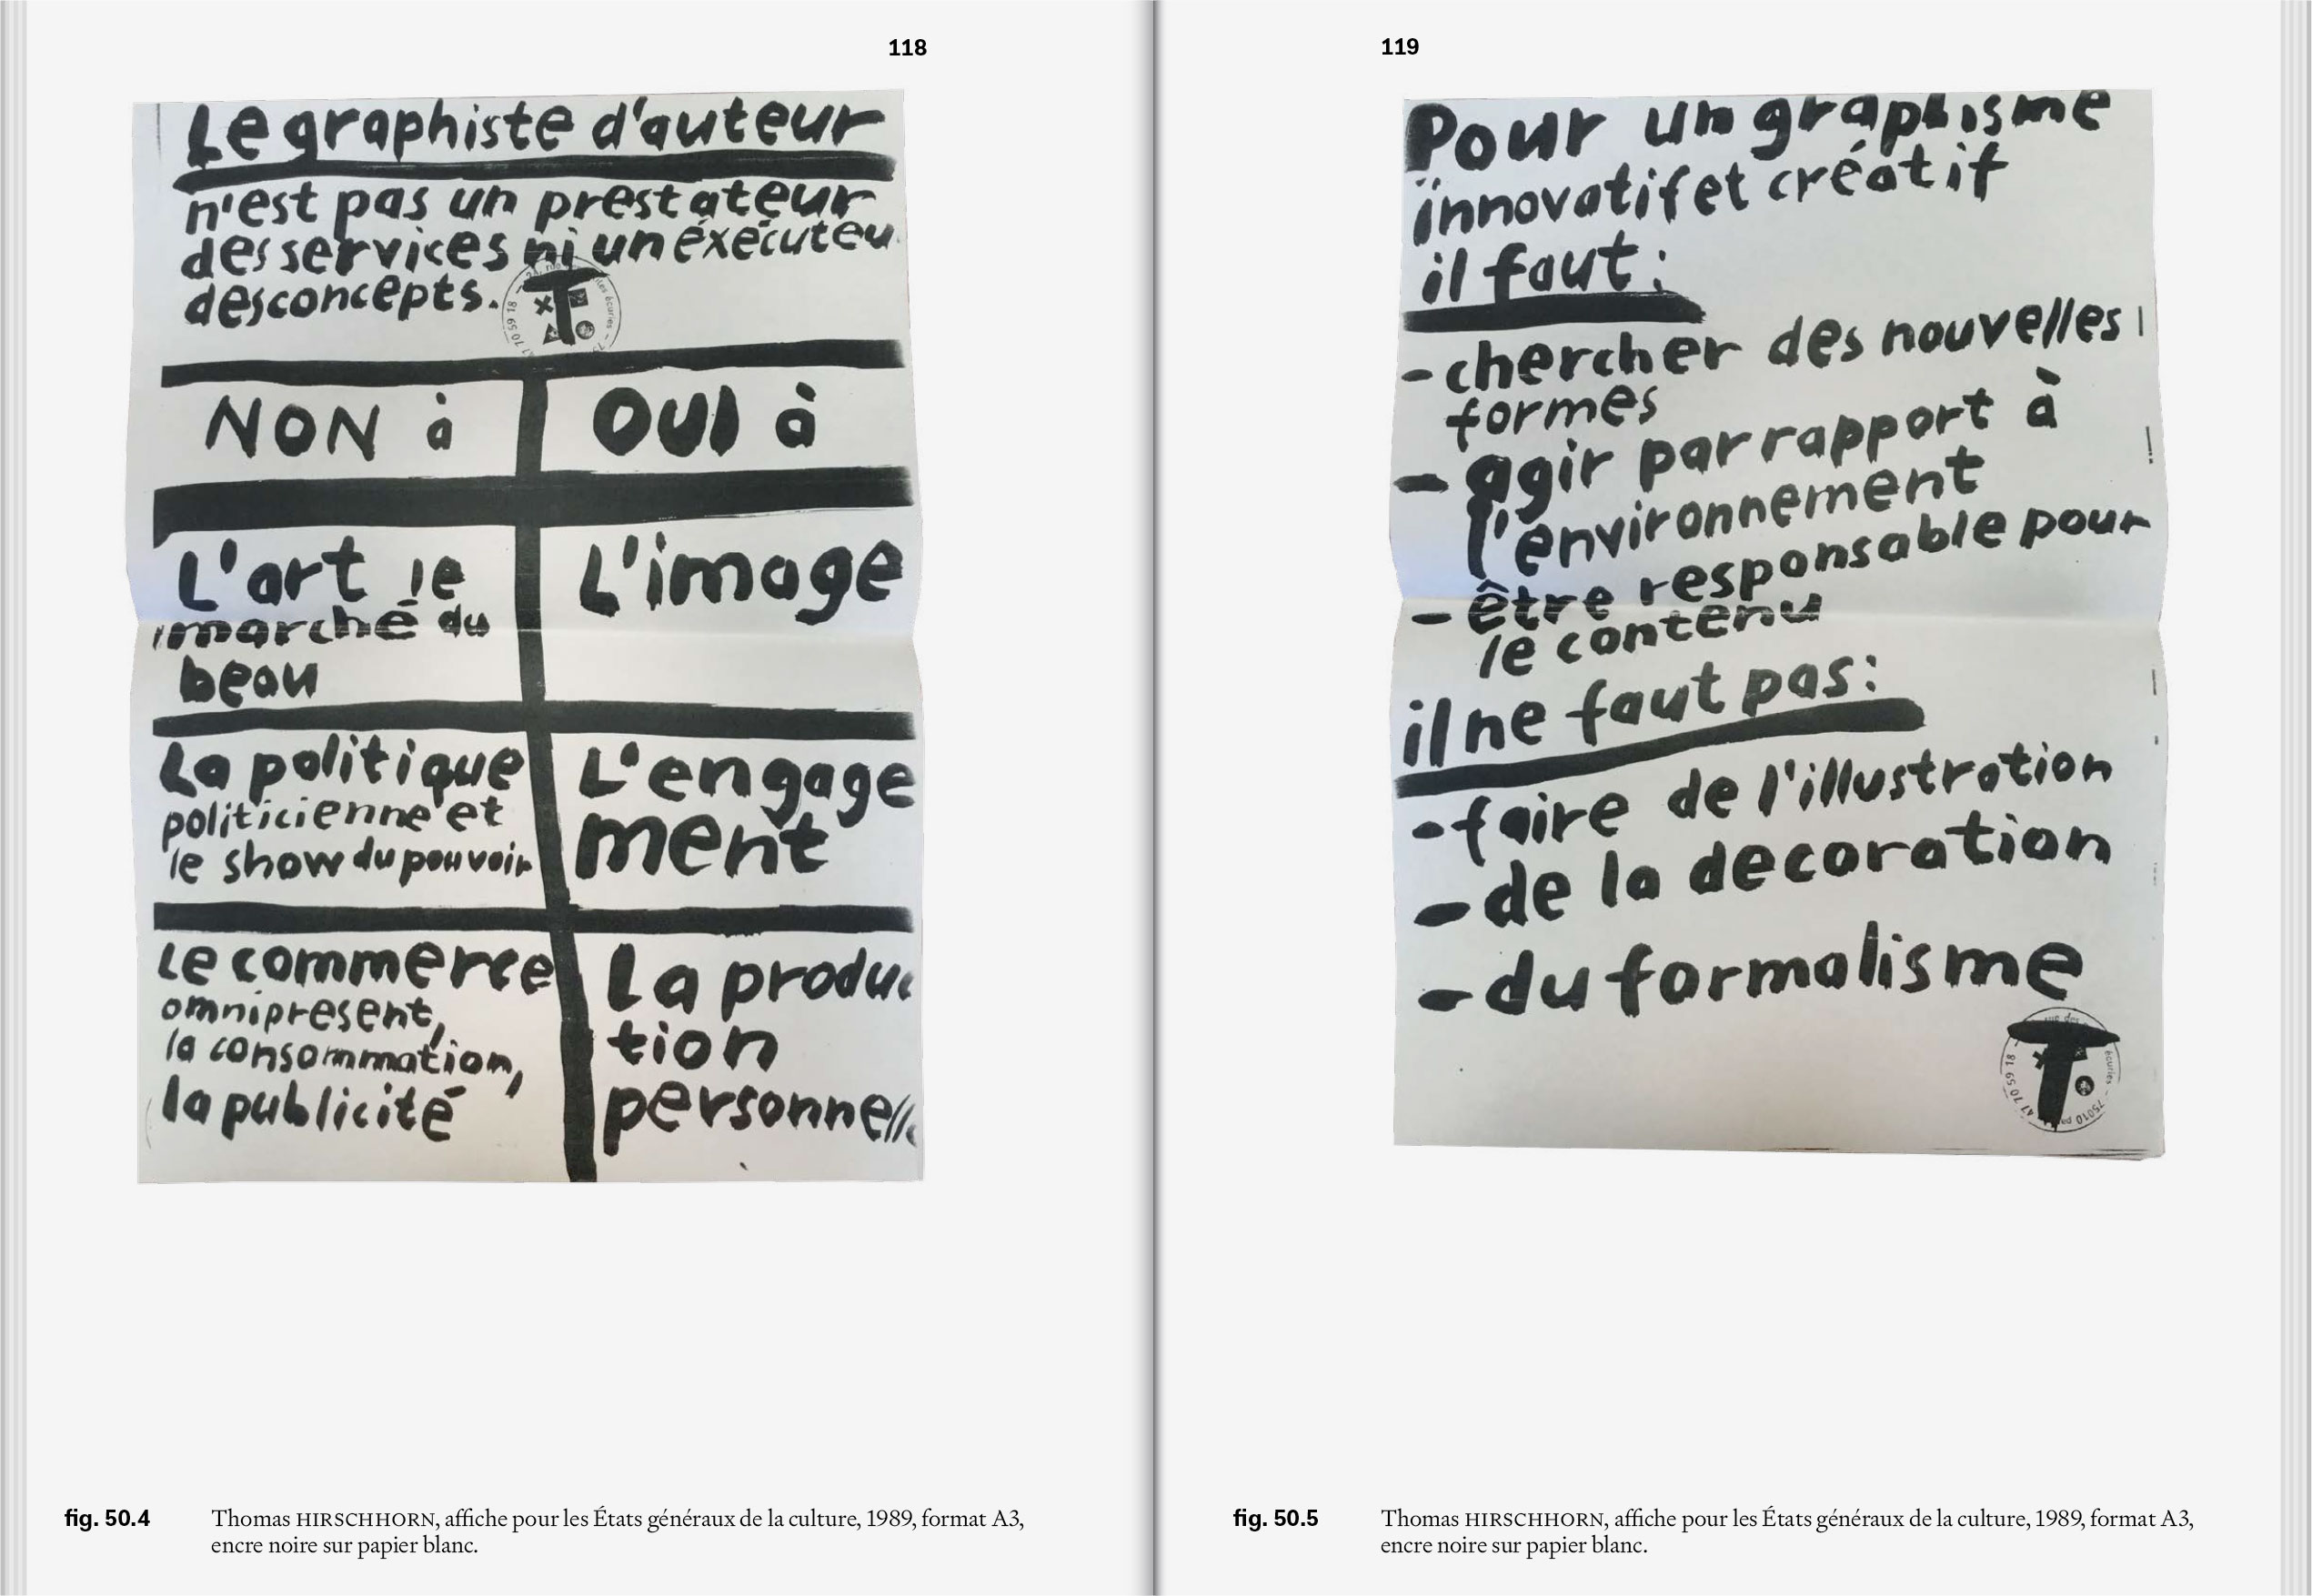 118
Le graphiste d'auteur
n'est pas un prestateur
des services ni un éxécuteu
des concepts.
NON à
OUI à
L'art le
marché du
beau
L'image
La politique
politicienne et
le show du pouvoir
L'engage
ment
Le commerce
omnipresent,
la consommation,
la publicité
La produc
tion
personnelle
fig. 50.4
Thomas HIRSCHHORN, affiche pour les États généraux de la culture, 1989, format A3,
encre noire sur papier blanc.
119
Pour un graphisme
innovatif et créatif
il faut :
- chercher des nouvelles
formes
- agir par rapport à
l'environnement
- être responsable pour
le contenu
il ne faut pas :
- faire de l'illustration
- de la decoration
- du formalisme
T
écuries - 75010 pa
47 70 59 18 -
fig. 50.5
Thomas HIRSCHHORN, affiche pour les États généraux de la culture, 1989, format A3,
encre noire sur papier blanc.